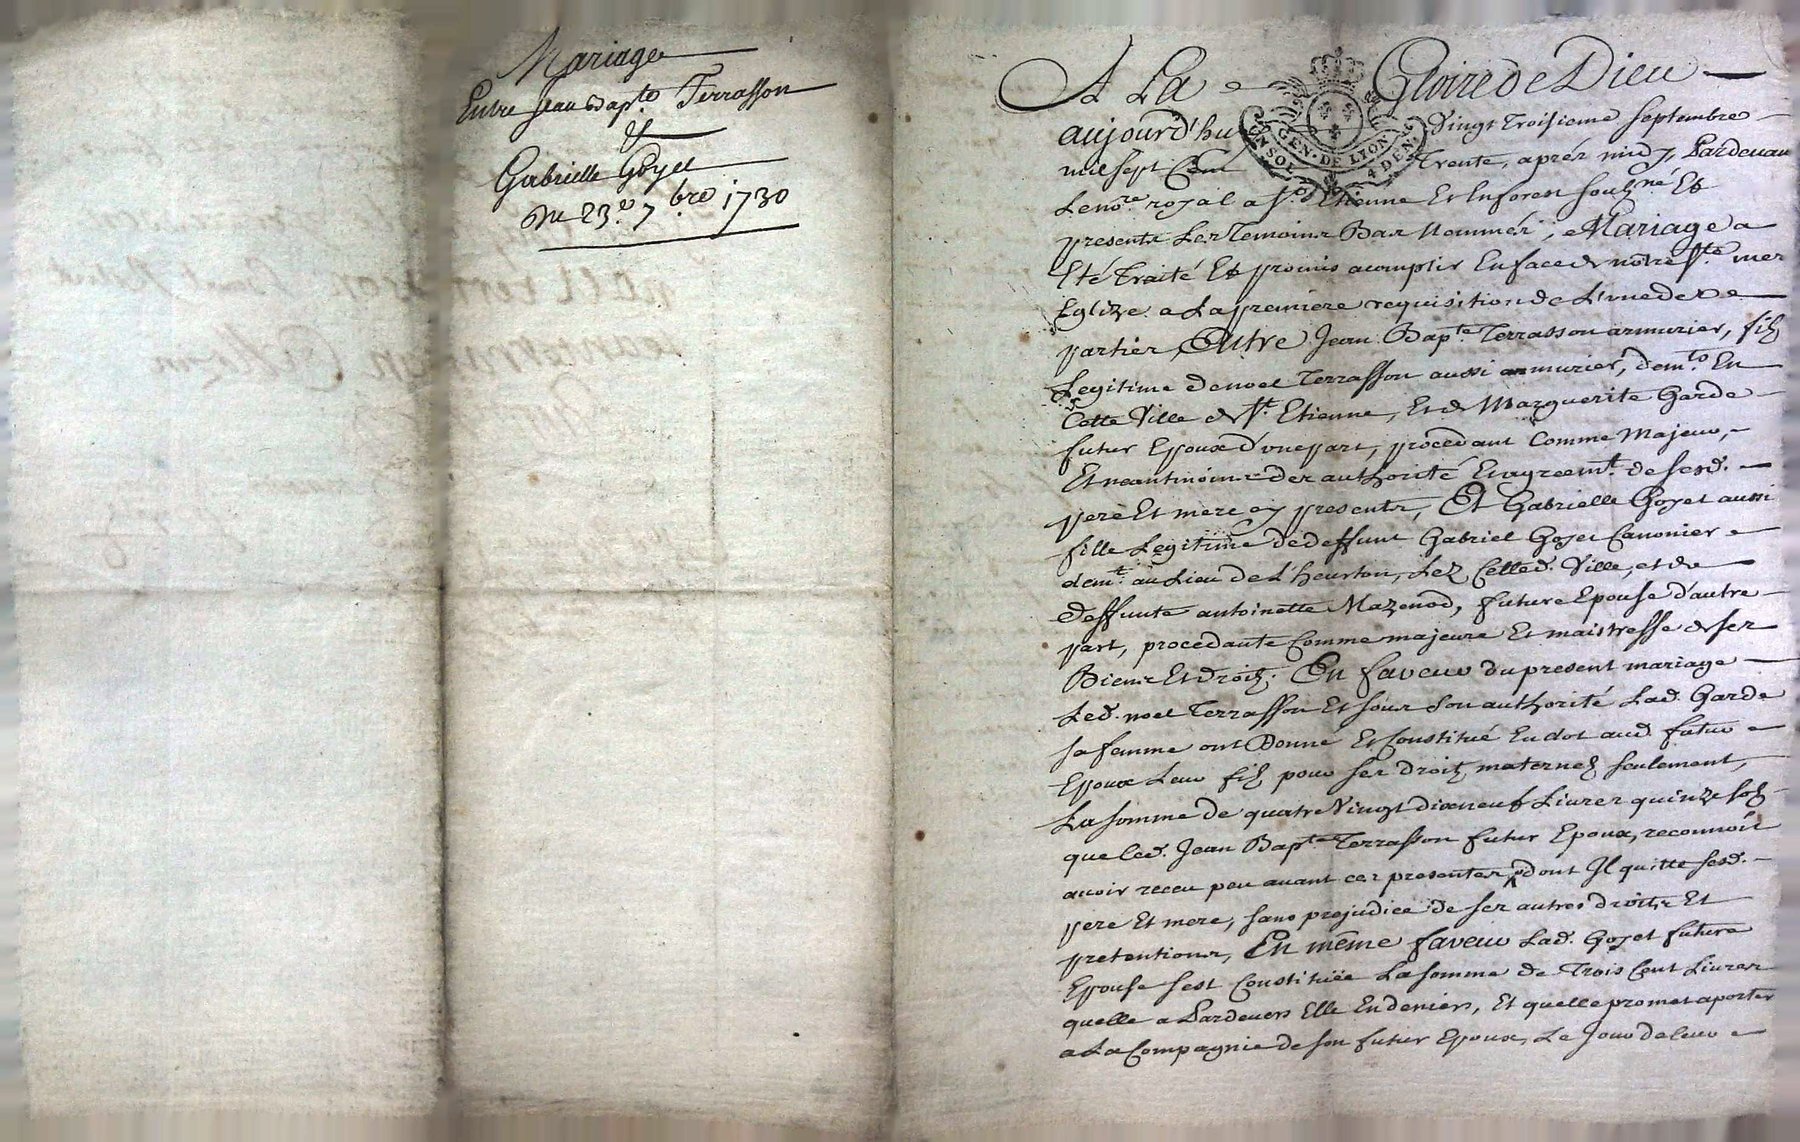 Mariage
Entre Jean Bap.te Terrasson
&
Gabrielle Goyet
Du 23.e 7bre 1730
A La Gloire de Dieu
aujourd'huy Vingt Troisieme Septembre
mil sept Cent Trente, aprés midy, Pardevant
Le no.re royal a S.t Etienne Et Enforest soubz.né Et
presents Les Temoins Bas Nommés, Mariage a
Eté Traité Et promis acomplir En face de nôtre S.te mere
Eglize a La premiere requisition de L'une des
parties, Entre Jean Bap.te Terrasson armurier, filz
Legitime de noel Terrasson aussi armurier, dem.t En
Cette Ville de S.t Etienne, Et de Marguerite Garde
futur Epoux d'une part, procedant Comme Majeur,
Et neantmoins de authorité Et agreem.t de sesd.
pere Et mere cy presents, Et Gabrielle Goyet aussi
fille Legitime de deffunt Gabriel Goyet Canonier
dem.t au Lieu de L'heurton, Lez Cetted. Ville, et de
deffunte antoinette Mazenod, future Epouse d'autre
part, procedante Comme majeure Et maistresse de ses
Biens Et droitz. En faveur du present mariage
Led. noel Terrasson Et sous son authorité Lad. Garde
sa femme ont Donné Et Constitué En dot aud. futur
Epoux Leur filz pour ses droitz maternelz seulement,
La somme de quatre Vingt dixneuf Livres quinze solz
que Led. Jean Bap.te Terrasson futur Epoux, reconnoit
avoir receu peu avant ces presentes, dont Il quitte sesd.
pere Et mere, sans prejudice de ses autres droits Et
pretentions, En même faveur Lad. Goyet future
Epouse s'est Constituée La somme de Trois Cent Livres
quelle a Pardevers Elle En deniers, Et quelle promet aporter
a La Compagnie de son futur Epoux, Le Jour de leur
GEN. DE LYON
4 DEN